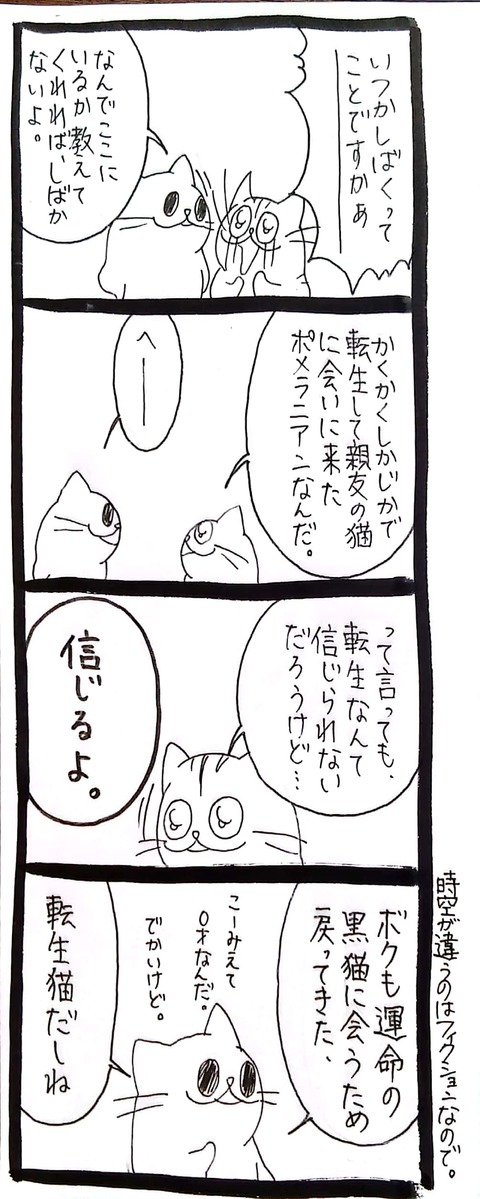 いつかしばくって
ことですかぁ
なんでここに
いるか教えて
くれれば、しばか
ないよ。
かくかくしかじかで
転生して親友の猫
に会いに来た
ポメラニアンなんだ。
へー
って言っても、
転生なんて
信じられない
だろうけど…
信じるよ。
ボクも運命の
黒猫に会うため
戻ってきた、
こーみえて
0才なんだ。
でかいけど。
転生猫だしね
時空が違うのはフィクションなので。